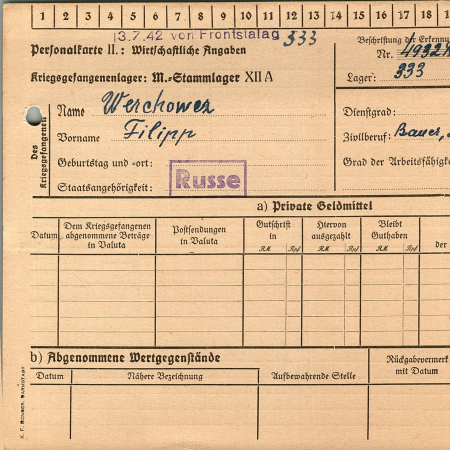 1 2 3 4 5 6 7 8 9 10 11 12 13 14 15 16 17 18
13.7.42 von Frontstalag 333
Personalkarte II.: Wirtschaftliche Angaben
Beschriftung der Erkennu
Nr. 4932
Kriegsgefangenenlager: M.-Stammlager XII A
Lager: 333
Des Kriegsgefangenen
Name Werchowez
Vorname Filipp
Geburtstag und -ort:
Staatsangehörigkeit: Russe
Dienstgrad:
Zivilberuf: Bauer,
Grad der Arbeitsfähigk
a) Private Geldmittel
Datum
Dem Kriegsgefangenen abgenommene Beträge in Valuta
Postsendungen in Valuta
Gutschrift in
RM Rpf
Hiervon ausgezahlt
RM Rpf
Bleibt Guthaben
RM Rpf
der
b) Abgenommene Wertgegenstände
Datum
Nähere Bezeichnung
Aufbewahrende Stelle
Rückgabevermerk mit Datum